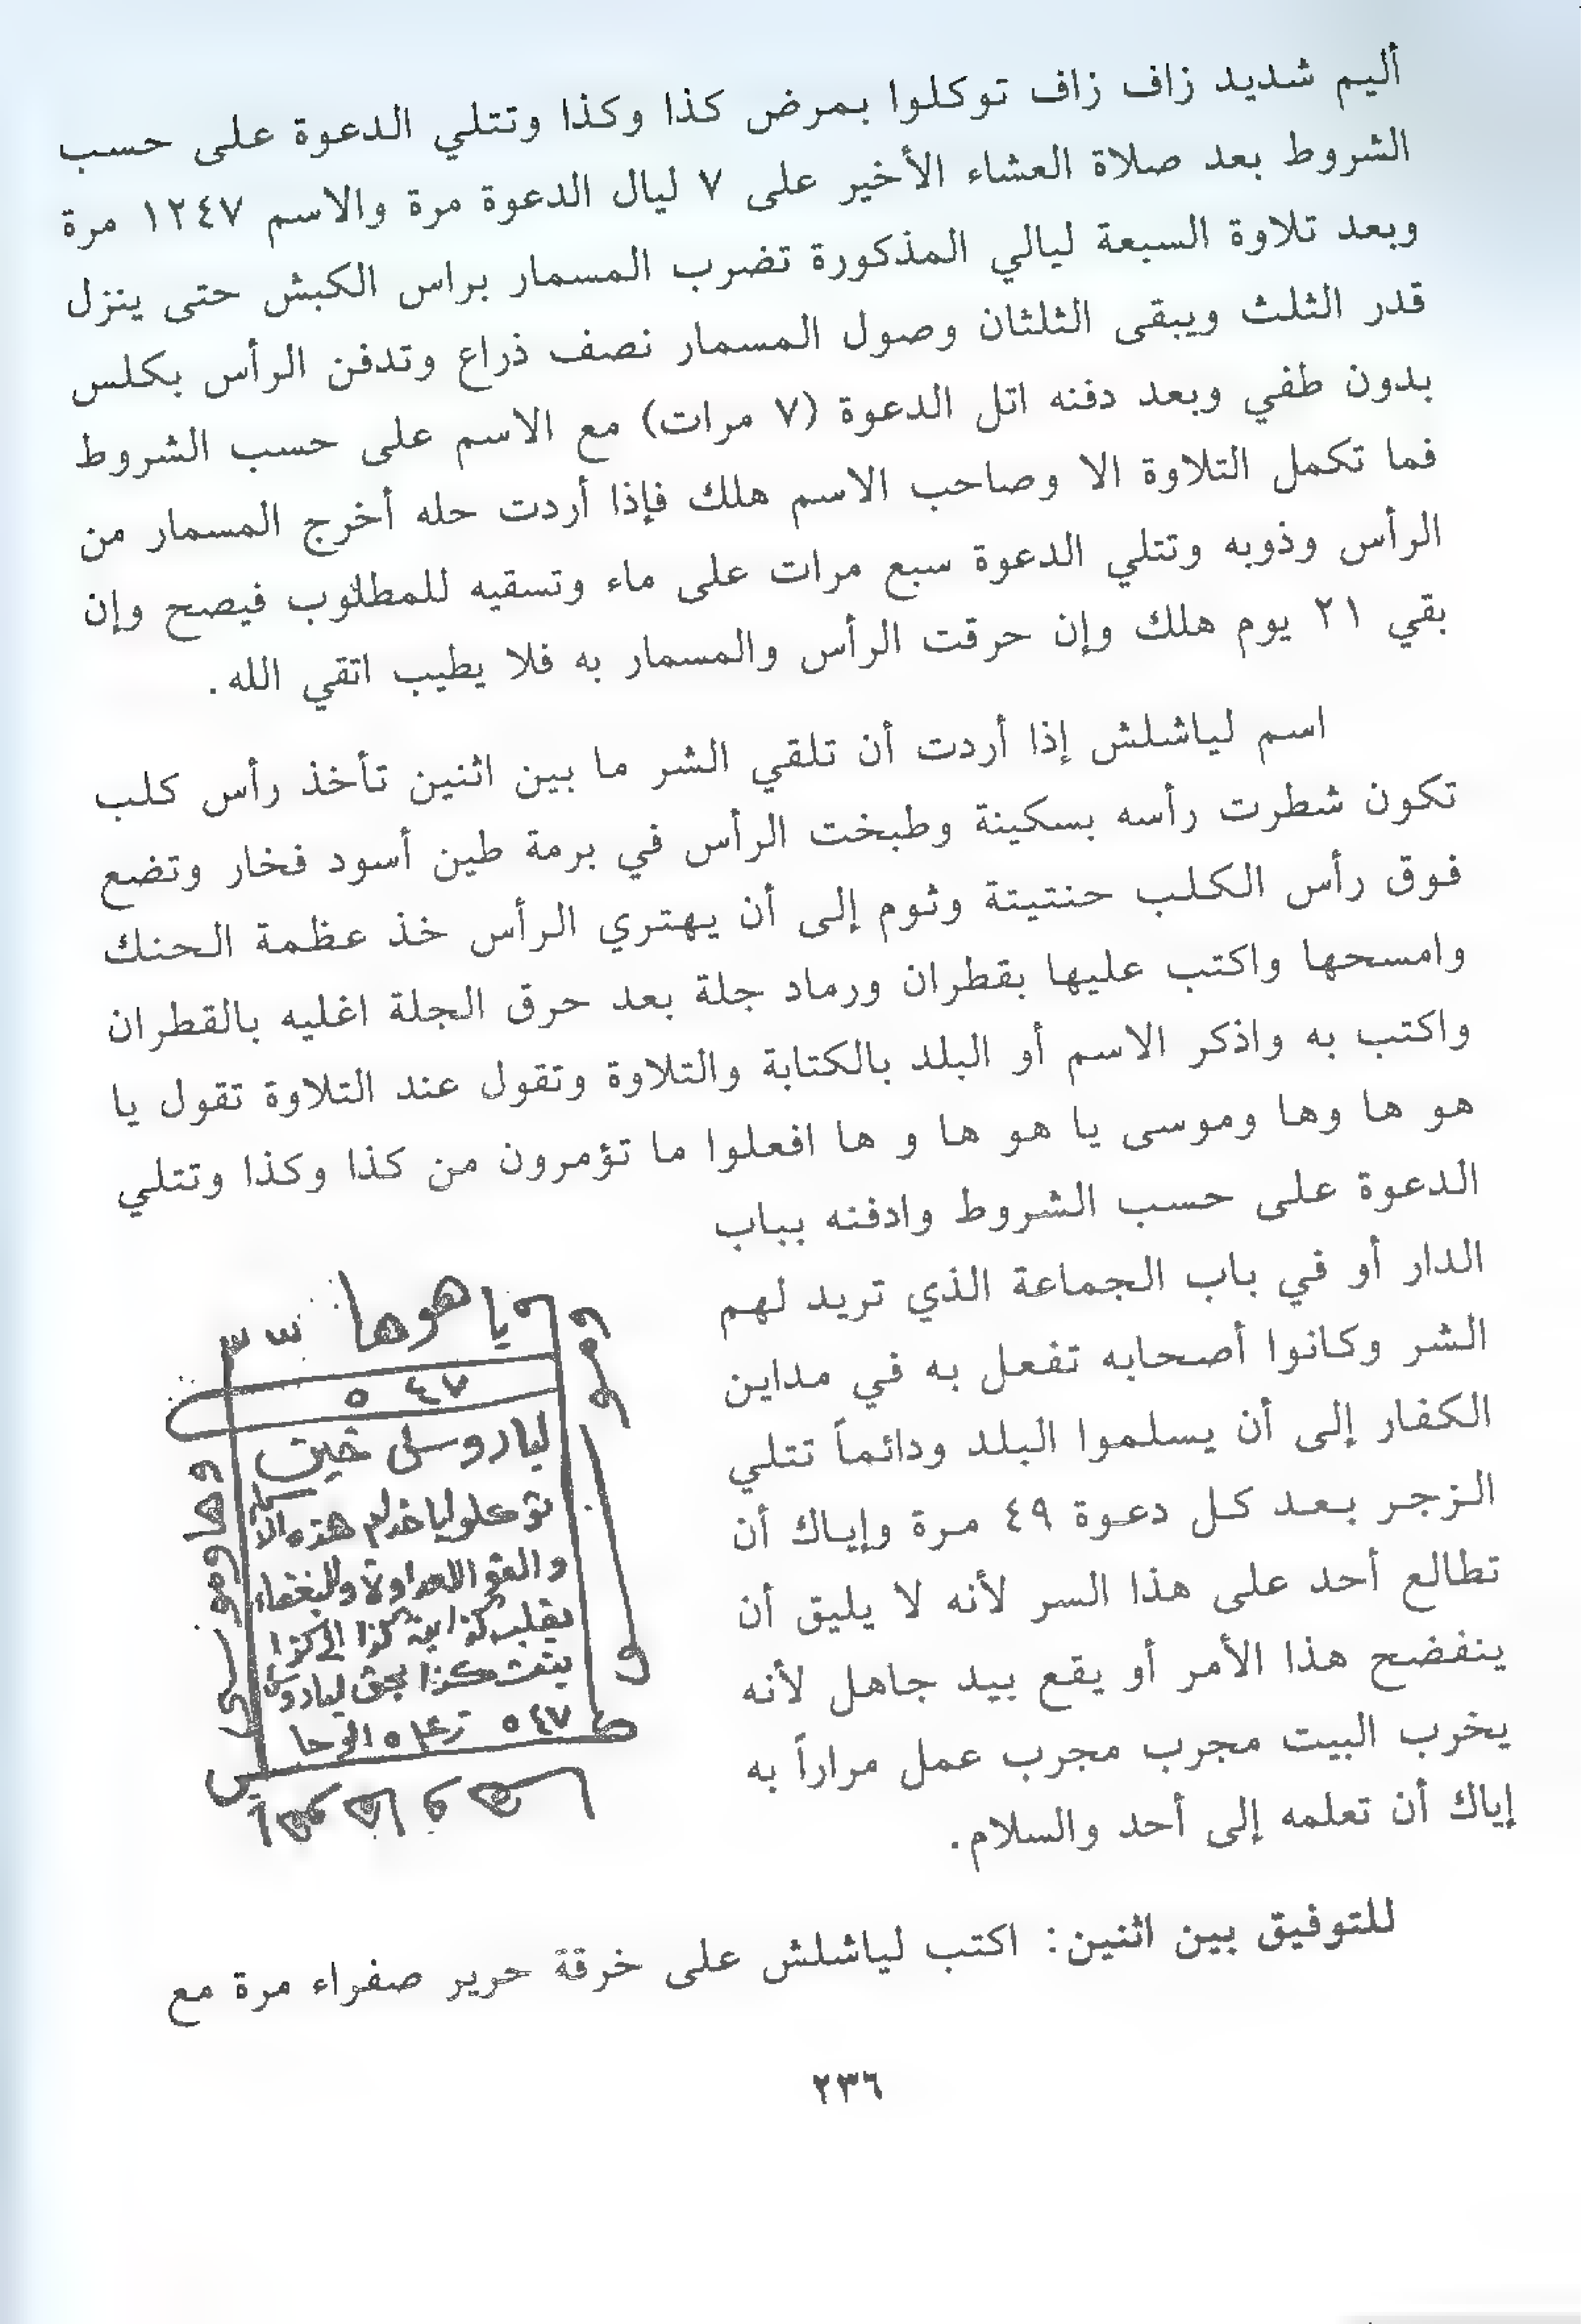 أليم شديد زاف زاف توكلوا بمرض كذا وكذا وتتلي الدعوة على حسب
الشروط بعد صلاة العشاء الأخير على ٧ ليال الدعوة مرة والاسم ١٢٤٧ مرة
وبعد تلاوة السبعة ليالي المذكورة تضرب المسمار براس الكبش حتى ينزل
قدر الثلث ويبقى الثلثان وصول المسمار نصف ذراع وتدفن الرأس بكلس
بدون طفي وبعد دفنه اتل الدعوة (٧ مرات) مع الاسم على حسب الشروط
فما تكمل التلاوة الا وصاحب الاسم هلك فإذا أردت حله أخرج المسمار من
الرأس وذوبه وتتلي الدعوة سبع مرات على ماء وتسقيه للمطلوب فيصح وإن
بقي ٢١ يوم هلك وإن حرقت الرأس والمسمار به فلا يطيب اتقي الله.
اسم لياشلش إذا أردت أن تلقي الشر ما بين اثنين تأخذ رأس كلب
تكون شطرت رأسه بسكينة وطبخت الرأس في برمة طين أسود فخار وتضع
فوق رأس الكلب حنتيتة وثوم إلى أن يهتري الرأس خذ عظمة الحنك
وامسحها واكتب عليها بقطران ورماد جلة بعد حرق الجلة اغليه بالقطران
واكتب به واذكر الاسم أو البلد بالكتابة والتلاوة وتقول عند التلاوة تقول يا
هو ها وها وموسى يا هو ها و ها افعلوا ما تؤمرون من كذا وكذا وتتلي
الدعوة على حسب الشروط وادفنه بباب
الدار أو في باب الجماعة الذي تريد لهم
الشر وكانوا أصحابه تفعل به في مداين
الكفار إلى أن يسلموا البلد ودائماً تتلي
الزجر بعد كل دعوة ٤٩ مرة وإياك أن
تطالع أحد على هذا السر لأنه لا يليق أن
ينفضح هذا الأمر أو يقع بيد جاهل لأنه
يخرب البيت مجرب مجرب عمل مراراً به
إياك أن تعلمه إلى أحد والسلام.
ياهوها
٥ ٤٧
توكلو ياخدام هذه الا
والقو العداوة والبغضاء
بقلب كذا ابن كذا الى كذا
بنت كذا بحق
٥ ٤٧
الوحا
للتوفيق بين اثنين: اكتب لياشلش على خرقة حرير صفراء مرة مع
٢٣٦